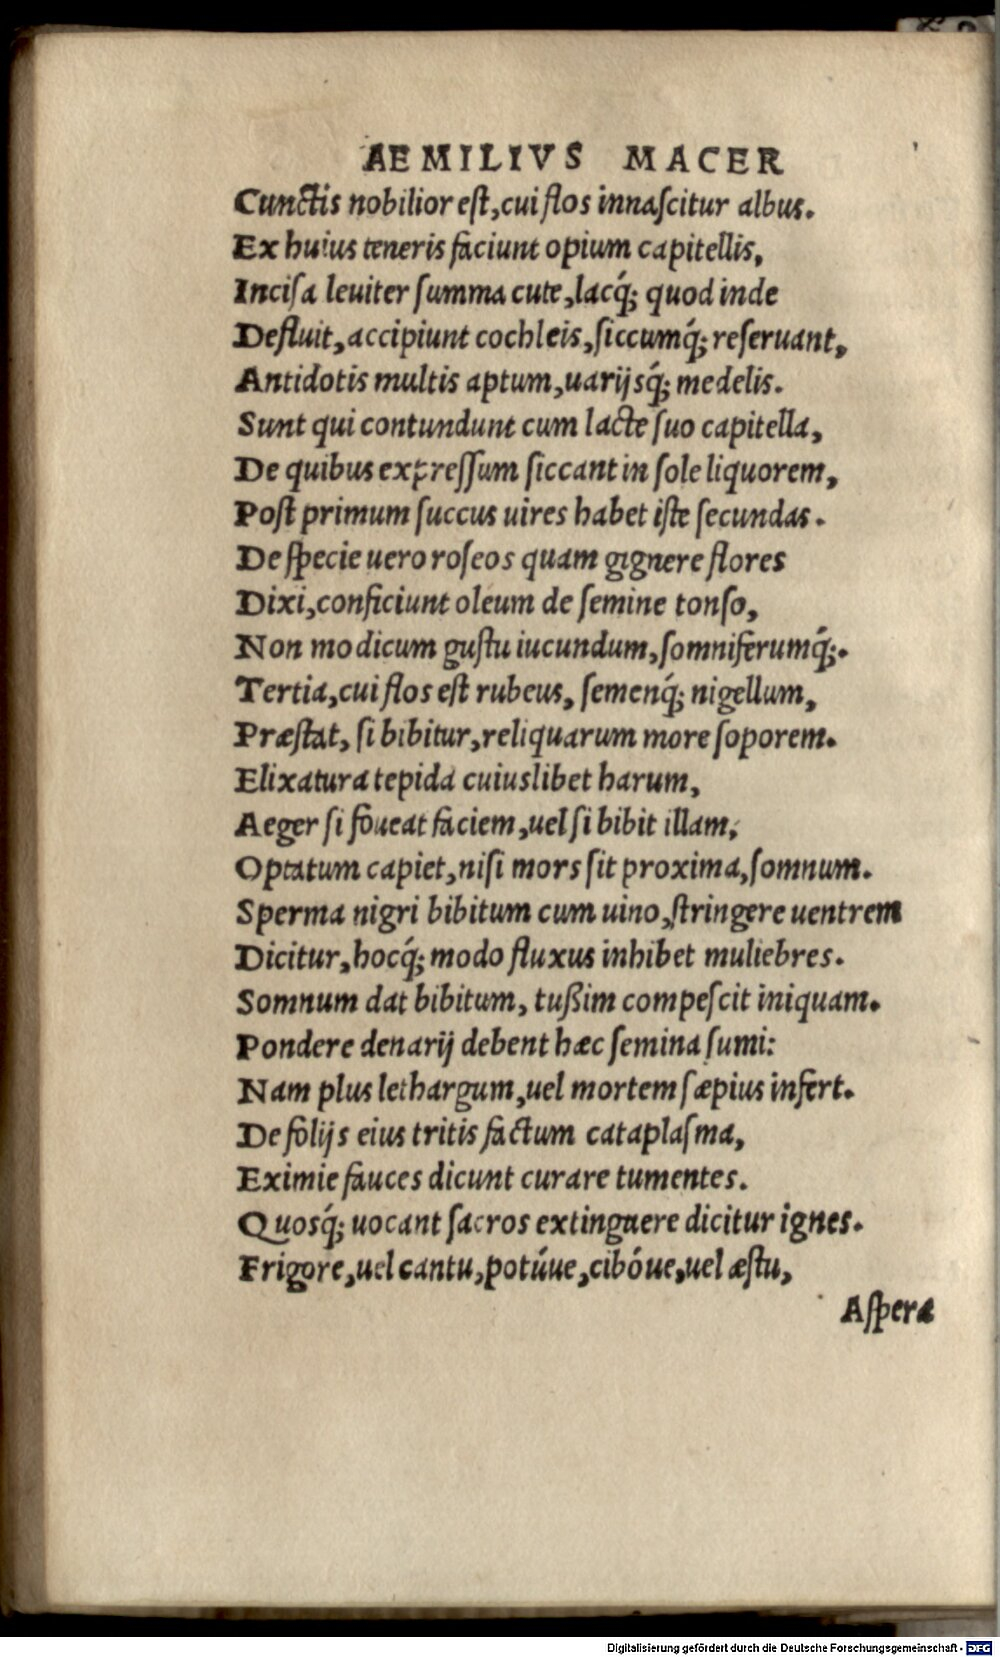 AEMILIVS MACER
Cunctis nobilior est, cui flos innascitur albus.
Ex huius teneris faciunt opium capitellis,
Incisa leuiter summa cute, lacq́; quod inde
Defluit, accipiunt cochleis, siccumq́; reseruant,
Antidotis multis aptum, uarijsq́; medelis.
Sunt qui contundunt cum lacte suo capitella,
De quibus expressum siccant in sole liquorem,
Post primum succus uires habet iste secundas.
De specie uero roseos quam gignere flores
Dixi, conficiunt oleum de semine tonso,
Non modicum gustu iucundum, somniferumq́;.
Tertia, cui flos est rubeus, semenq́; nigellum,
Præstat, si bibitur, reliquarum more soporem.
Elixatura tepida cuiuslibet harum,
Aeger si foueat faciem, uel si bibit illam,
Optatum capiet, nisi mors sit proxima, somnum.
Sperma nigri bibitum cum uino, stringere uentrem
Dicitur, hocq́; modo fluxus inhibet muliebres.
Somnum dat bibitum, tußim compescit iniquam.
Pondere denarij debent hæc semina sumi:
Nam plus lethargum, uel mortem sæpius infert.
De folijs eius tritis factum cataplasma,
Eximie fauces dicunt curare tumentes.
Quosq́; uocant sacros extinguere dicitur ignes.
Frigore, uel cantu, potúue, cibóue, uel æstu,
Aspera
Digitalisierung gefördert durch die Deutsche Forschungsgemeinschaft - DFG